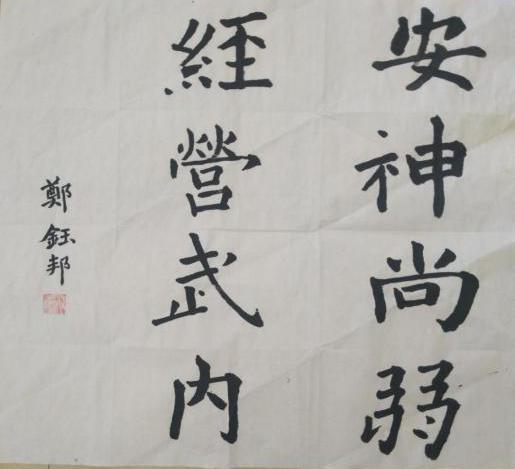 安神尚弱
經營武内
鄭鈺邦